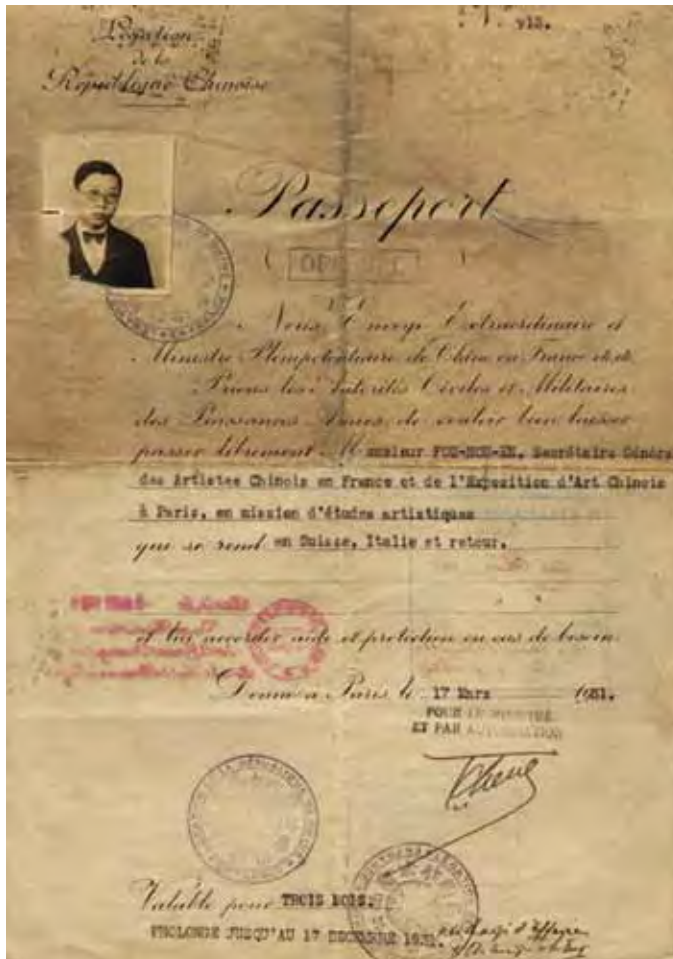 Légation
de la
République Chinoise
N. 913.
Passeport
( OFFICIEL )
Nous Envoyé Extraordinaire et
Ministre Plénipotentiaire de Chine en France etc. etc.
Prions les Autorités Civiles et Militaires
des Puissances Amies de vouloir bien laisser
passer librement Monsieur FOU-NOU-EN, Secrétaire Général
des Artistes Chinois en France et de l'Exposition d'Art Chinois
à Paris, en mission d'études artistiques
que se rend en Suisse, Italie et retour.
et lui accorder aide et protection en cas de besoin.
Donné à Paris le 17 Mars 1931.
POUR LE MINISTRE
ET PAR AUTORISATION
Valable pour TROIS MOIS.
PROLONGE JUSQU'AU 17 DECEMBRE 1931.